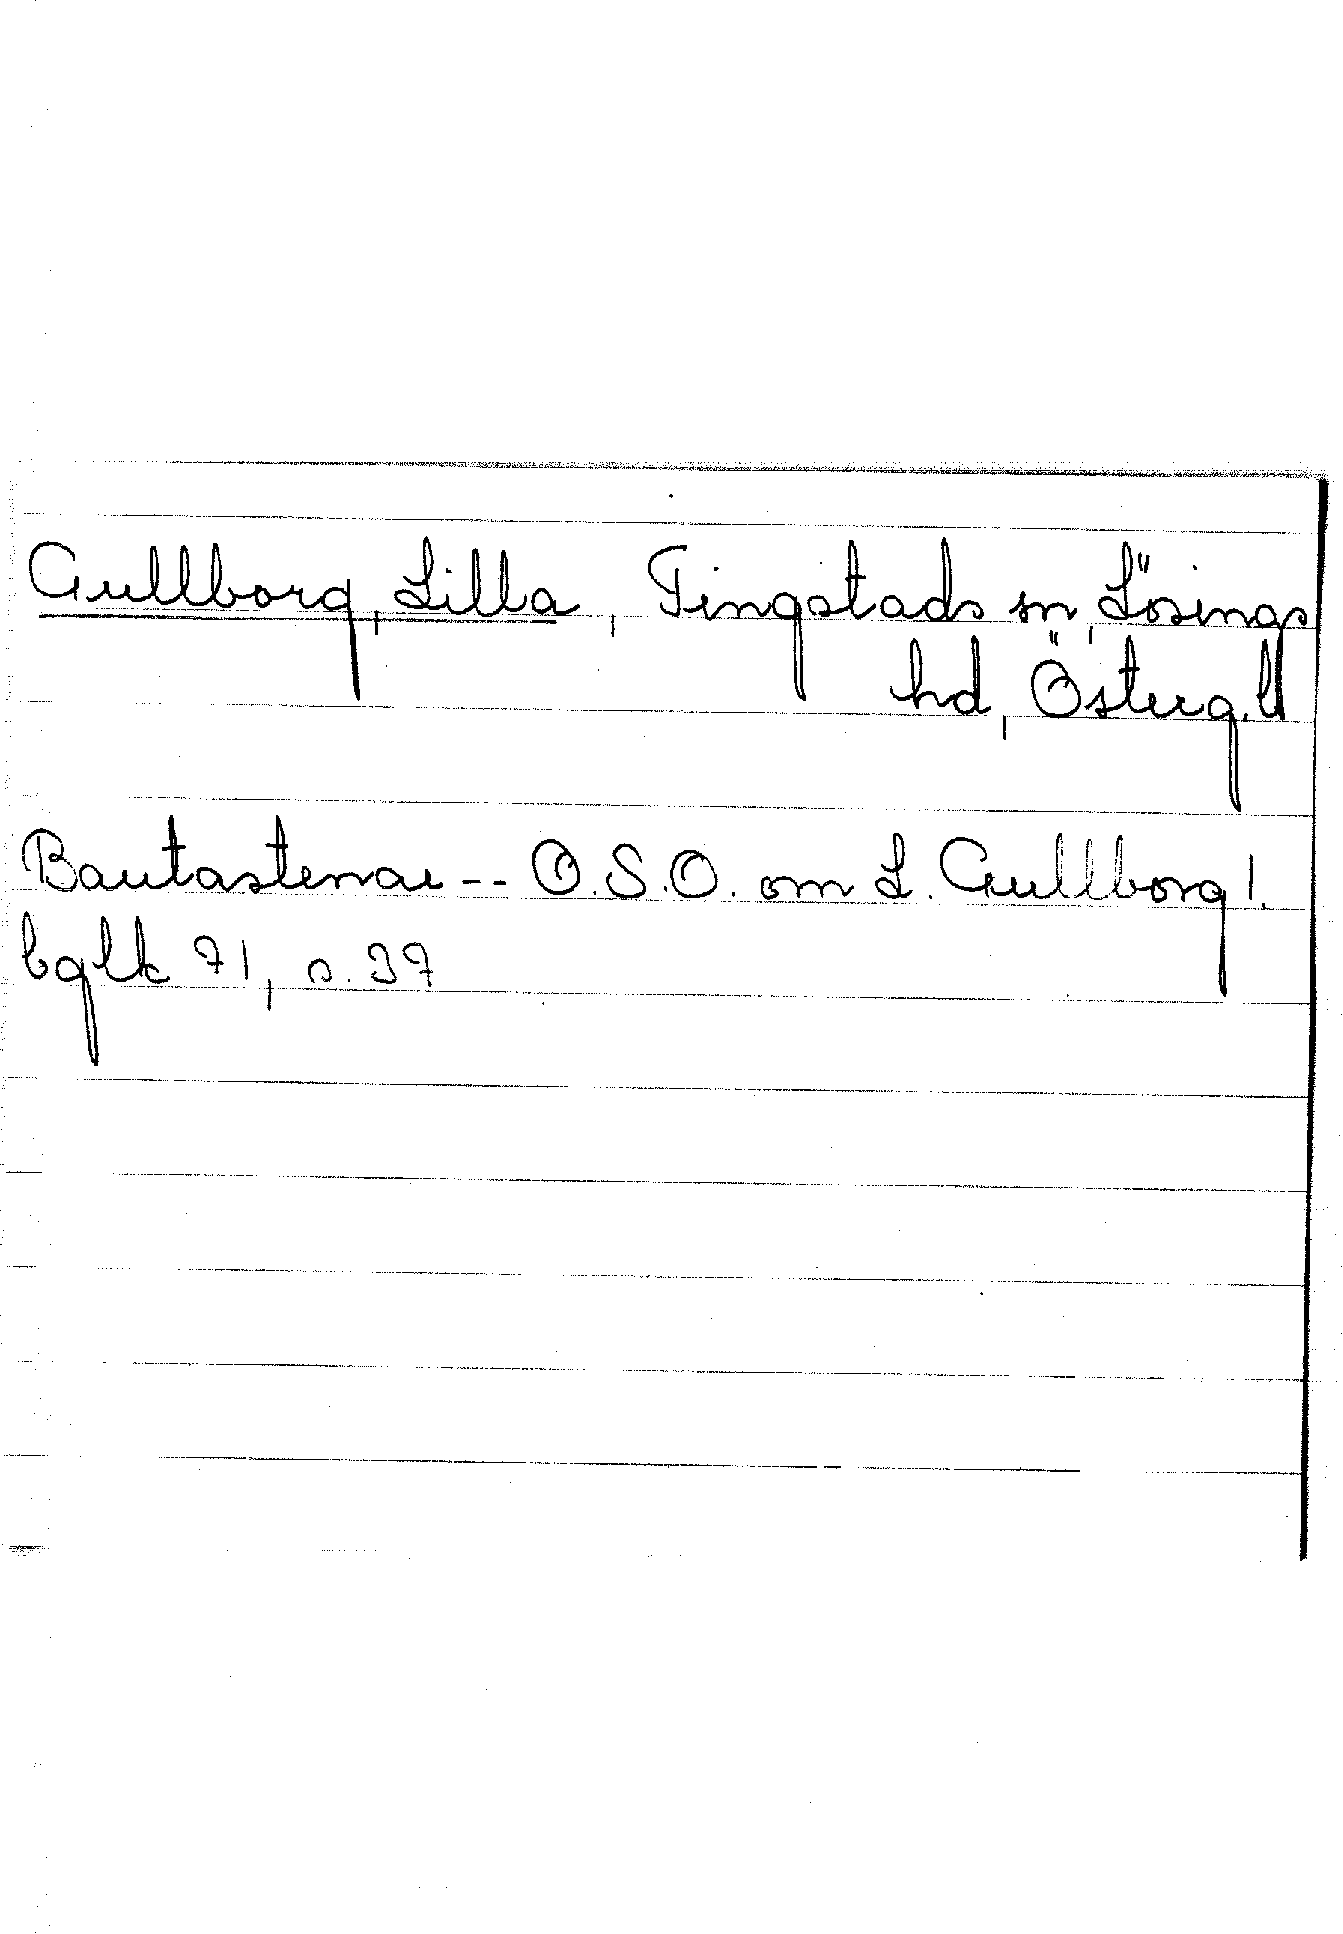 Gullborg, Lilla, Tingstads sn, Lösings
hd, Österg. ll
Bautastenar -- O.S.O. om L. Gullborg!.
bglk 71, s. 37